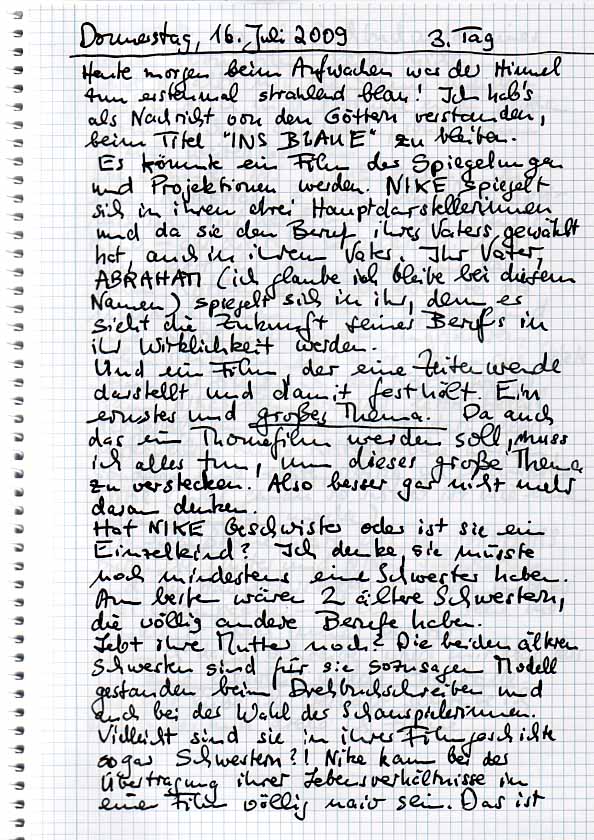 Donnerstag, 16. Juli 2009 3. Tag
Heute morgen beim Aufwachen war der Himmel
zum erstenmal strahlend blau! Ich hab's
als Nachricht von den Göttern verstanden,
beim Titel "INS BLAUE" zu bleiben.
Es könnte ein Film der Spiegelungen
und Projektionen werden. NIKE spiegelt
sich in ihren drei Hauptdarstellerinnen
und da sie den Beruf ihres Vaters gewählt
hat, auch in ihrem Vater. Ihr Vater,
ABRAHAM (ich glaube ich bleibe bei diesem
Namen) spiegelt sich in ihr, denn er
sieht die Zukunft seines Berufs in
ihr Wirklichkeit werden.
Und ein Film, der eine Zeitenwende
darstellt und damit festhält. Ein
ernstes und großes Thema. Da auch
das ein Thomefilm werden soll, muss
ich alles tun, um dieses große Thema
zu verstecken. Also besser gar nicht mehr
daran denken.
Hat NIKE Geschwister oder ist sie ein
Einzelkind? Ich denke, sie müsste
noch mindestens eine Schwester haben.
Am besten wären 2 ältere Schwestern,
die völlig andere Berufe haben.
Lebt ihre Mutter noch? Die beiden älteren
Schwestern sind für sie sozusagen Modell
gestanden beim Drehbuchschreiben und
auch bei der Wahl der Schauspielerinnen.
Vielleicht sind sie in ihrer Filmgeschichte
sogar Schwestern?! Nike kann bei der
Übertragung ihrer Lebensverhältnisse in
eine Film völlig naiv sein. Das ist